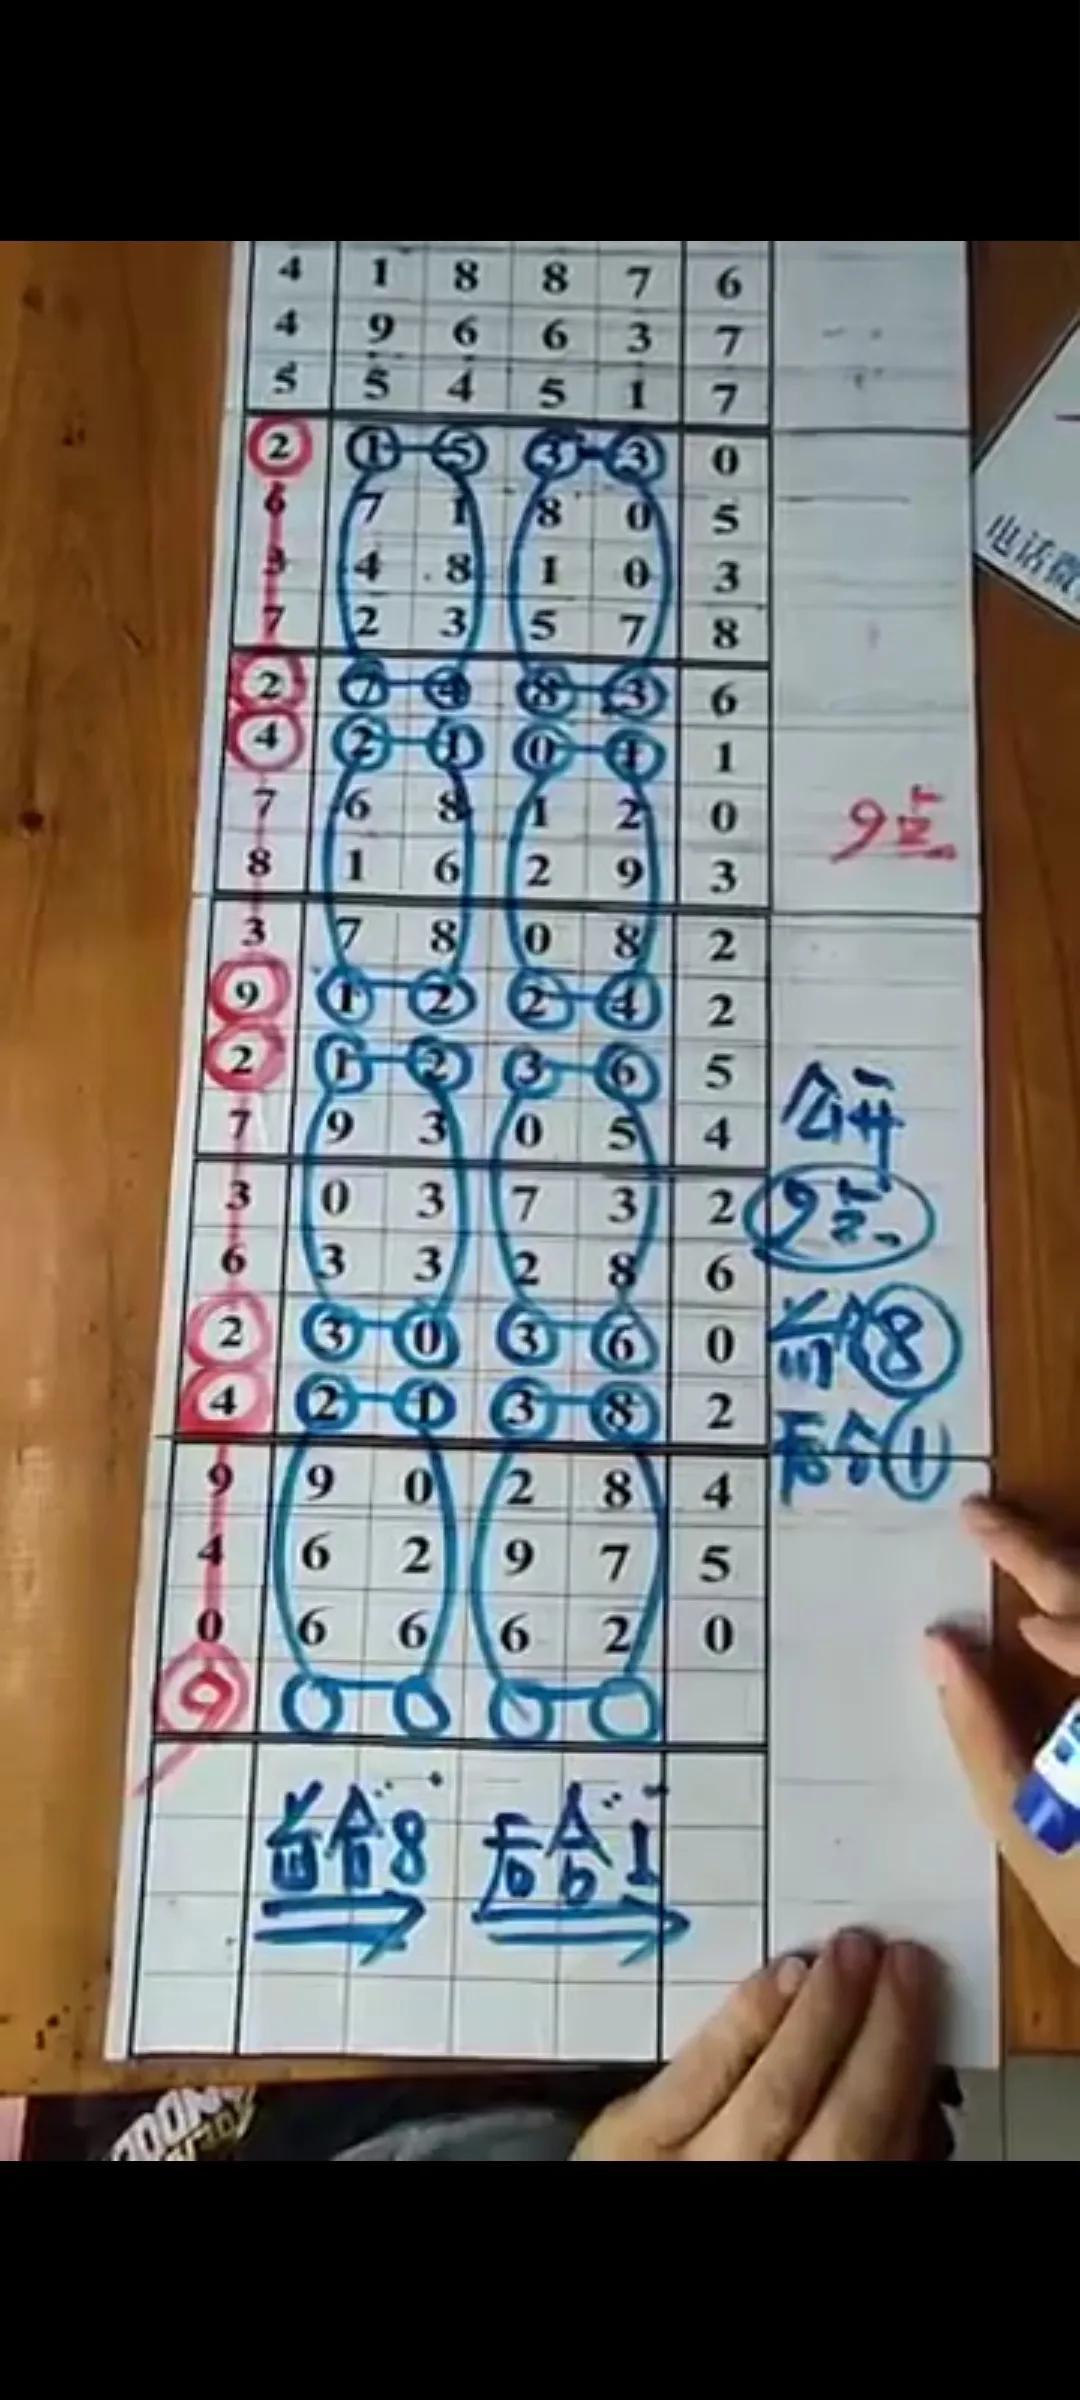 4 1 8 8 7 6
4 9 6 6 3 7
5 5 4 5 1 7
2 1 5 3 3 0
6 7 1 8 0 5
3 4 8 1 0 3
7 2 3 5 7 8
2 7 4 8 3 6
4 2 1 0 1 1
7 6 8 1 2 0
8 1 6 2 9 3
3 7 8 0 8 2
9 1 2 2 4 2
2 1 2 3 6 5
7 9 3 0 5 4
3 0 3 7 3 2
6 3 3 2 8 6
2 3 0 3 6 0
4 2 1 3 8 2
9 9 0 2 8 4
4 6 2 9 7 5
0 6 6 6 2 0
9
前合8 后合1
9
9
8
后合1
电话微